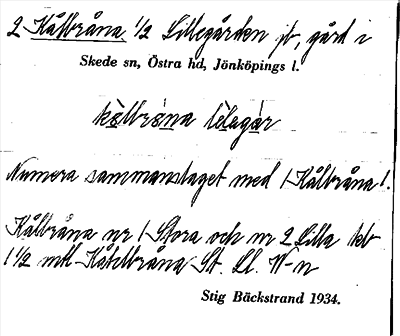 2 Kålbråna 1/2 Lillegården jb, gård i
Skede sn, Östra hd, Jönköpings l.
kålbråna lilegår
Numera sammanslaget med 1 Kålbråna!.
Kålbråna nr 1 Stora och nr 2 Lilla
1 1/2 mtl St. Ll.
Stig Bäckstrand 1934.